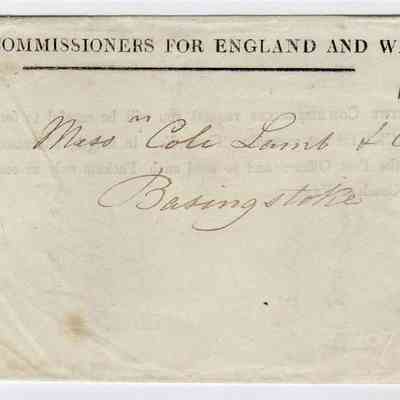 COMMISSIONERS FOR ENGLAND AND W
Messrs Cole Lamb & C
Basingstoke